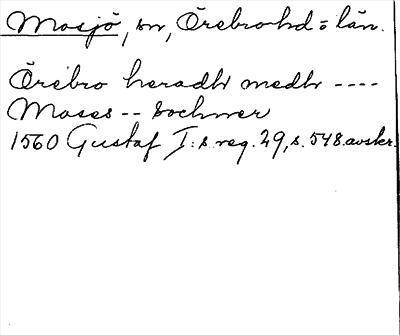 Mosjö, sn, Örebro hd = län.
Örebro heradh medh ----
Moses -- sochner
1560 Gustaf I:s reg. 29, s. 548. avskr.